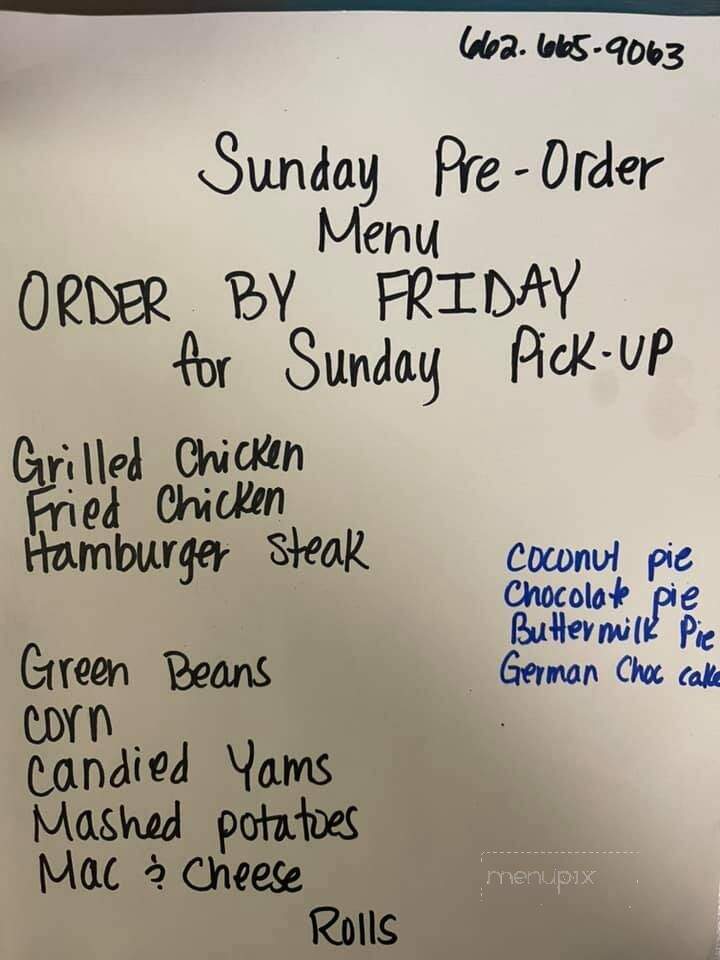 662.665-9063
Sunday Pre-Order
Menu
ORDER BY FRIDAY
for Sunday Pick-UP
Grilled Chicken
Fried Chicken
Hamburger Steak
Coconut pie
Chocolate pie
Buttermilk Pie
German Choc cake
Green Beans
Corn
Candied Yams
Mashed potatoes
Mac & Cheese
Rolls
menupix